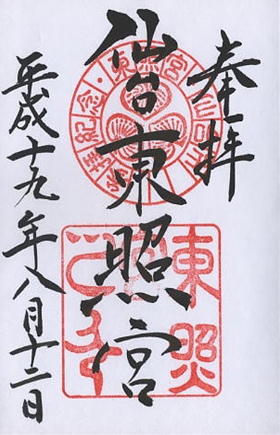 奉拝
仙台東照宮
平成十九年八月十二日
東照宮